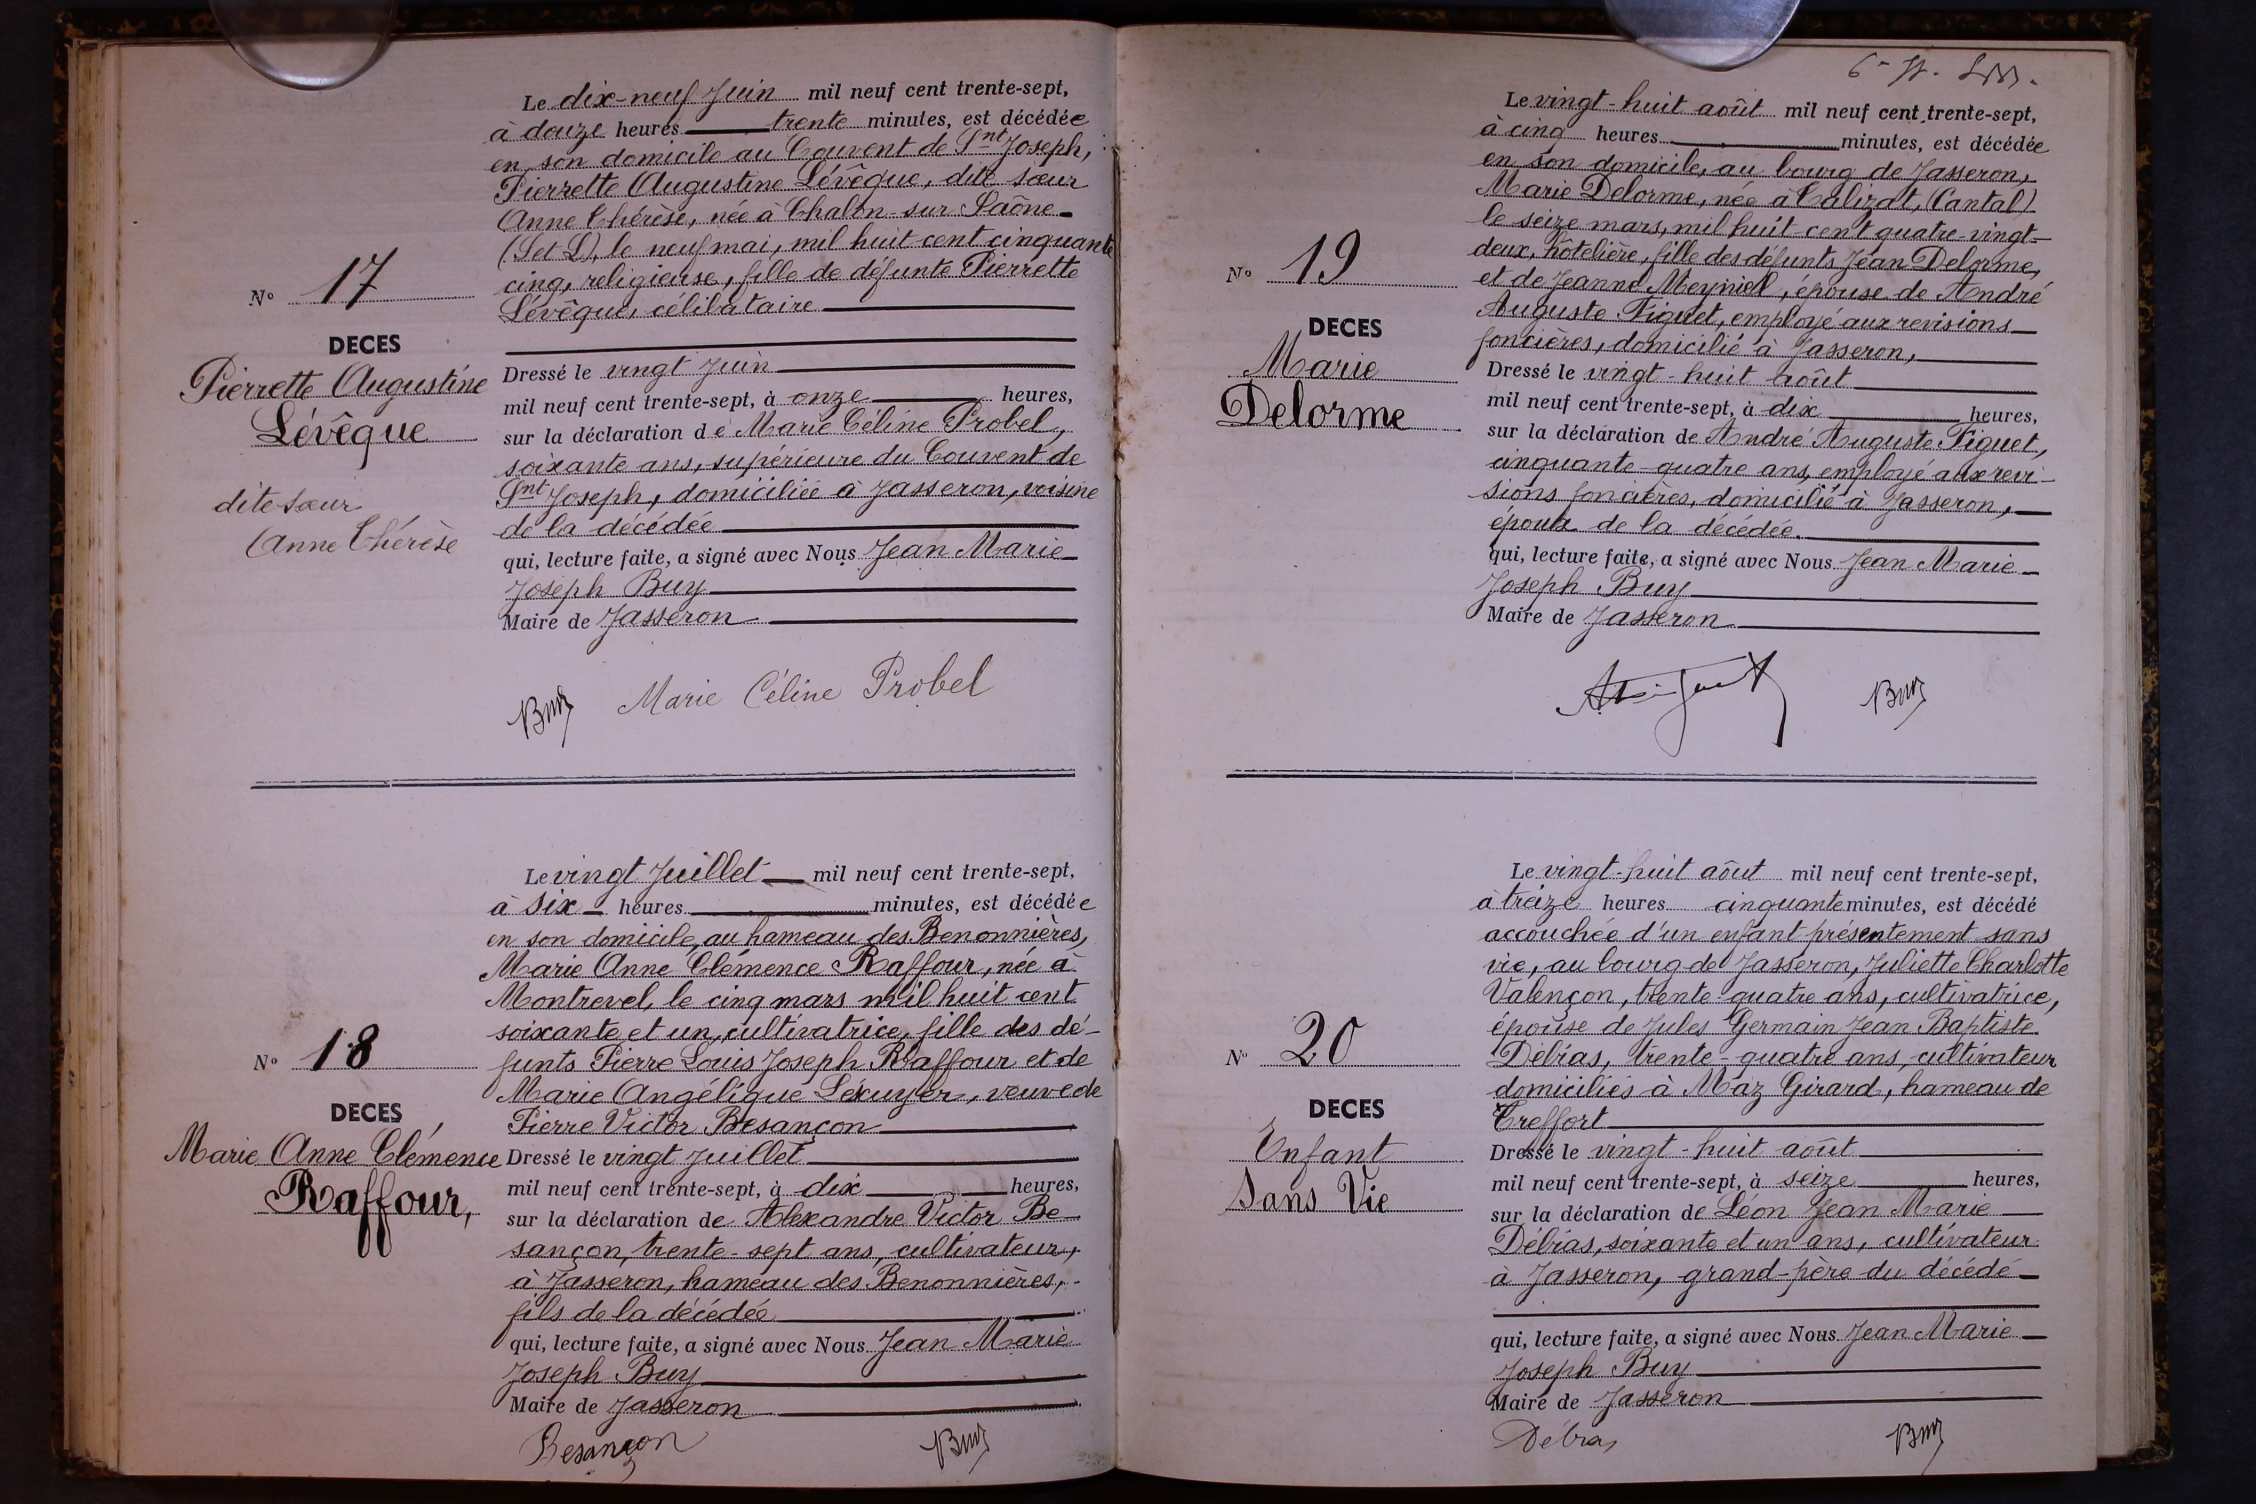 Le dix-neuf Juin mil neuf cent trente-sept,
à douze heures trente minutes, est décédée
en son domicile au Couvent de Snt Joseph,
Pierrette Augustine Lévêque, dite sœur
Anne Thérèse, née à Chalon-sur-Saône
(S et L), le neuf mai, mil huit cent cinquante
cinq, religieuse, fille de défunte Pierrette
Lévêque, célibataire
N° 17
DECES
Pierrette Augustine
Lévêque
dite sœur
Anne Thérèse
Dressé le vingt Juin
mil neuf cent trente-sept, à onze heures,
sur la déclaration de Marie Céline Probel,
soixante ans, supérieure du Couvent de
Snt Joseph, domiciliée à Jasseron, voisine
de la décédée
qui, lecture faite, a signé avec Nous Jean Marie
Joseph Buy
Maire de Jasseron
Buy Marie Céline Probel
Le vingt Juillet mil neuf cent trente-sept,
à six heures minutes, est décédée
en son domicile, au hameau des Benonnières,
Marie Anne Clémence Raffour, née à
Montrevel, le cinq mars mil huit cent
soixante et un, cultivatrice, fille des dé-
funts Pierre Louis Joseph Raffour et de
Marie Angélique Lécuyer, veuve de
Pierre Victor Besançon
N° 18
DECES
Marie Anne Clémence
Raffour,
Dressé le vingt Juillet
mil neuf cent trente-sept, à dix heures,
sur la déclaration de Alexandre Victor Be
sançon, trente-sept ans, cultivateur,
à Jasseron, hameau des Benonnières,
fils de la décédée
qui, lecture faite, a signé avec Nous Jean Marie
Joseph Buy
Maire de Jasseron
Besançon Buy
Le vingt-huit août mil neuf cent trente-sept,
à cinq heures minutes, est décédée
en son domicile, au bourg de Jasseron,
Marie Delorme, née à Talizat, (Cantal)
le seize mars, mil huit-cent quatre-vingt-
deux, hôtelière, fille des défunts Jean Delorme,
et de Jeanne Meyniel, épouse de André
Auguste Figuet, employé aux revisions
foncières, domicilié à Jasseron,
N° 19
DECES
Marie
Delorme
Dressé le vingt-huit août
mil neuf cent trente-sept, à dix heures,
sur la déclaration de André Auguste Figuet,
cinquante-quatre ans, employé aux revi-
sions foncières, domicilié à Jasseron,
époux de la décédée.
qui, lecture faite, a signé avec Nous Jean Marie
Joseph Buy
Maire de Jasseron
Buy
Le vingt-huit août mil neuf cent trente-sept,
à treize heures cinquante minutes, est décédé
accouchée d'un enfant présentement sans
vie, au bourg de Jasseron, Juliette Charlotte
Valençon, trente-quatre ans, cultivatrice,
épouse de Jules Germain Jean Baptiste
Débias, trente-quatre ans, cultivateur
domiciliés à Maz Girard, hameau de
Treffort
N° 20
DECES
Enfant
Sans Vie
Dressé le vingt-huit août
mil neuf cent trente-sept, à seize heures,
sur la déclaration de Léon Jean Marie
Débias, soixante et un ans, cultivateur
à Jasseron, grand-père du décédé
qui, lecture faite, a signé avec Nous Jean Marie
Joseph Buy
Maire de Jasseron
Débias Buy